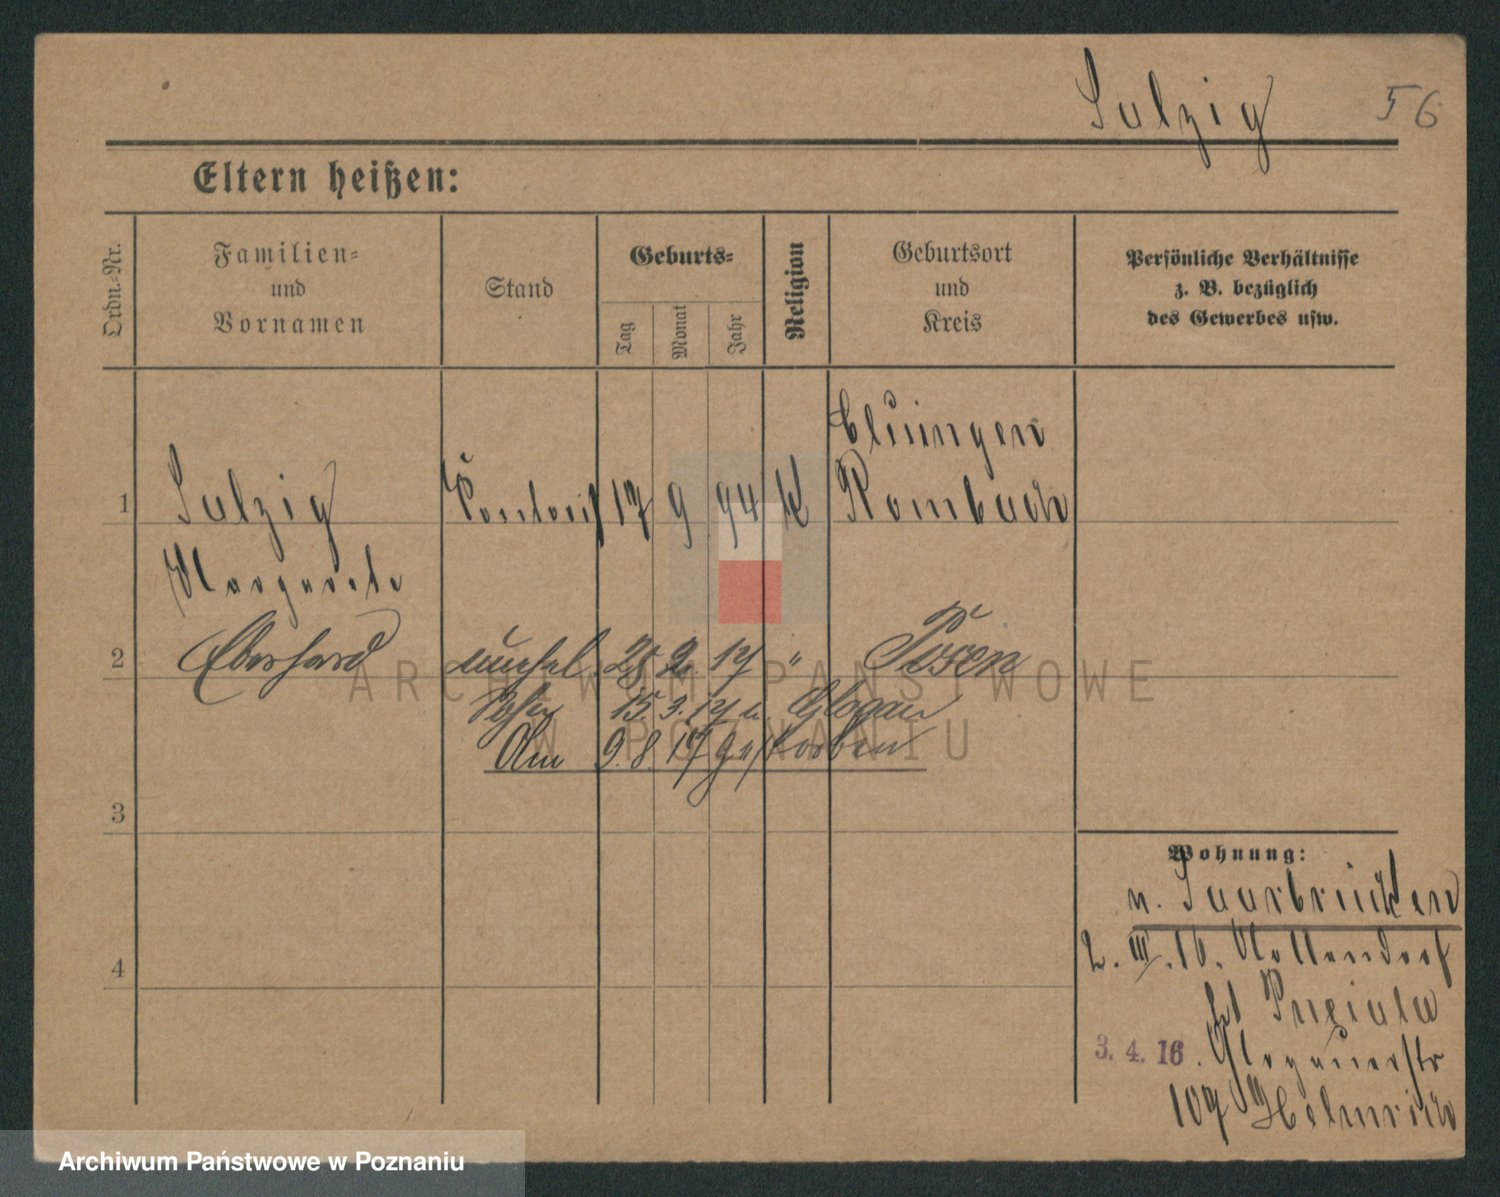 Sulzig 56
Eltern heißen:
Ordn.-Nr.
Familien-
und
Vornamen
Stand
Geburts-
Tag
Monat
Jahr
Religion
Geburtsort
und
Kreis
Persönliche Verhältnisse
z. B. bezüglich
des Gewerbes usw.
1
Sulzig
Margarete
17 9 94 K
Rombach
2
Eberhard
unehel. 25 2 17 " Posen
15. 3. 17 n. Glogau
Am 9. 8. 17 gestorben
3
4
Wohnung:
n. Saarbrücken
2. III. 16. Nollendorf
3. 4. 16. Glogauerstr
107
ARCHIWUM PAŃSTWOWE
W POZNANIU
Archiwum Państwowe w Poznaniu